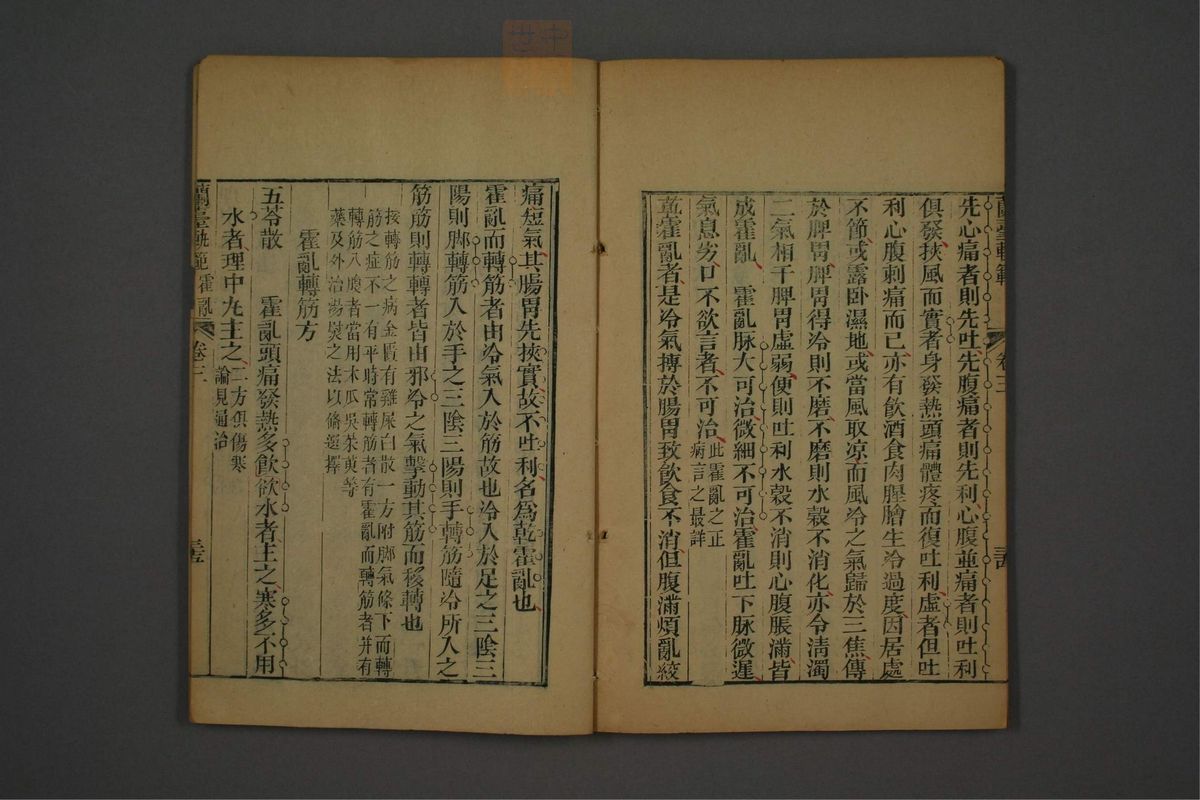 蘭臺軌範
卷三
先心痛者則先吐先腹痛者則先利心腹並痛者則吐利
俱發挾風而實者身發熱頭痛體疼而復吐利虛者但吐
利心腹刺痛而已亦有飲酒食肉腥膾生冷過度因居處
不節或露臥濕地或當風取凉而風冷之氣歸於三焦傳
於脾胃脾胃得冷則不磨不磨則水穀不消化亦令淸濁
二氣相干脾胃虛弱便則吐利水穀不消則心腹脹滿皆
成霍亂　霍亂脉大可治微細不可治霍亂吐下脉微遲
氣息劣口不欲言者不可治此霍亂之正
病言之最詳
乾霍亂者是冷氣搏於腸胃致飲食不消但腹滿煩亂絞
痛短氣其腸胃先挾實故不吐利名爲乾霍亂也
霍亂而轉筋者由冷氣入於筋故也冷入於足之三陰三
陽則脚轉筋入於手之三陰三陽則手轉筋隨冷所入之
筋筋則轉轉者皆由邪冷之氣擊動其筋而移轉也
按轉筋之病金匱有雞屎白散一方附脚氣條下而轉
筋之症不一有平時常轉筋者有霍亂而轉筋者幷有
轉筋入腹者當用木瓜吳茱萸等
藥及外治湯熨之法以條選擇
霍亂轉筋方
五苓散　霍亂頭痛發熱多飲欲水者主之寒多不用
水者理中丸主之二方俱傷寒
論見通治
蘭臺軌範
霍亂
卷三